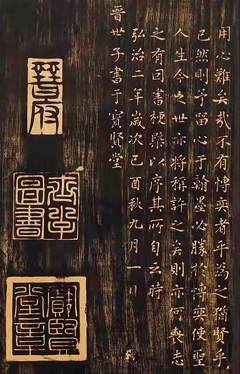 用心難矣哉不有博奕者乎為之猶賢乎
已然則予留心于翰墨必勝於博奕使聖
人生今之世亦將稱許之矣則亦何喪志
之有因書梗槩以序其所自云時
弘治二年歲次己酉秋九月一日
晉世子書于寶賢堂
晉府
圖書
寶賢堂章